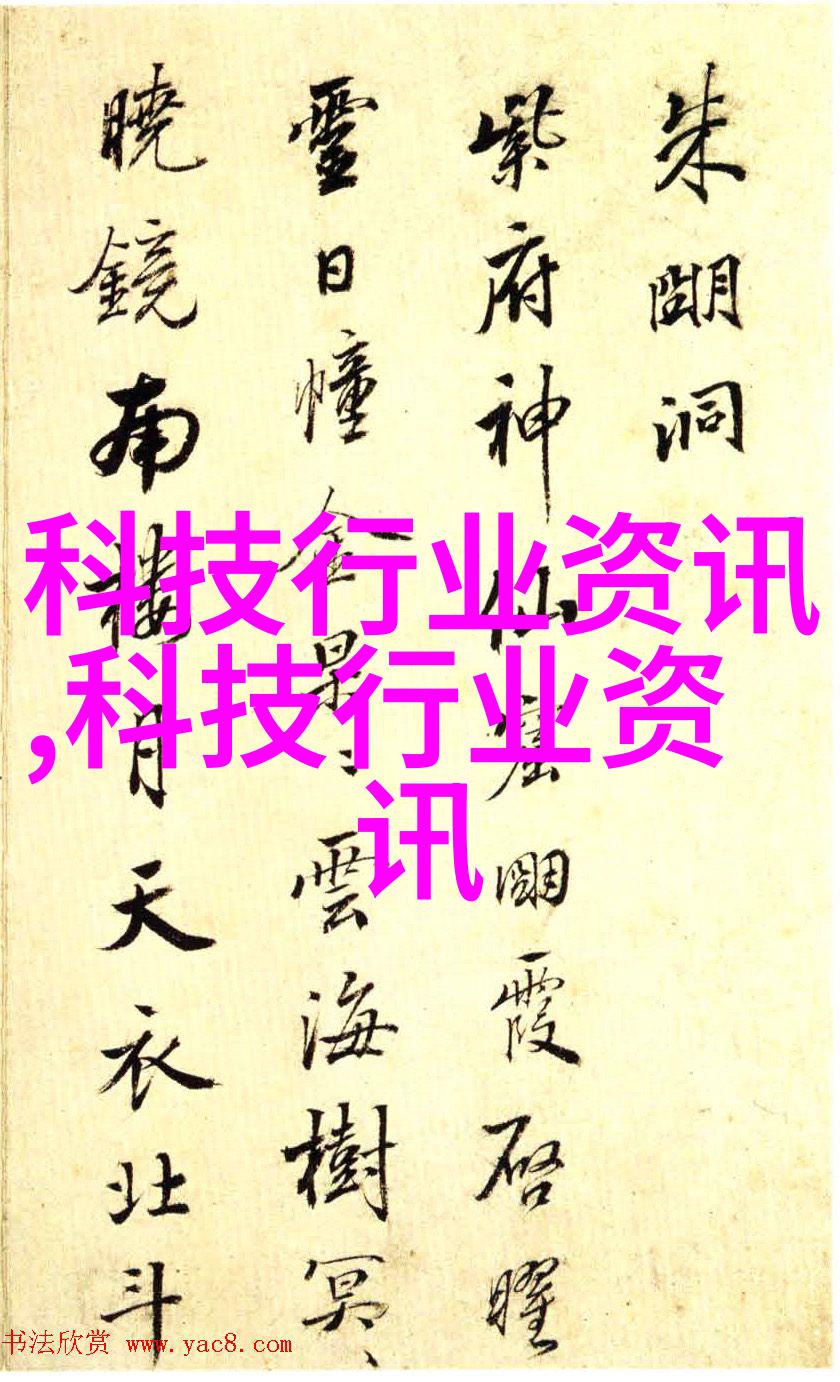 朱朙洞
紫府神仙窟朙霞启曜
霊日幢金杲〻雲海樹冥〻
曉鏡南樓月天衣北斗
科技行业资讯
,科技行业资
讯
书法欣赏 www.yac8.com